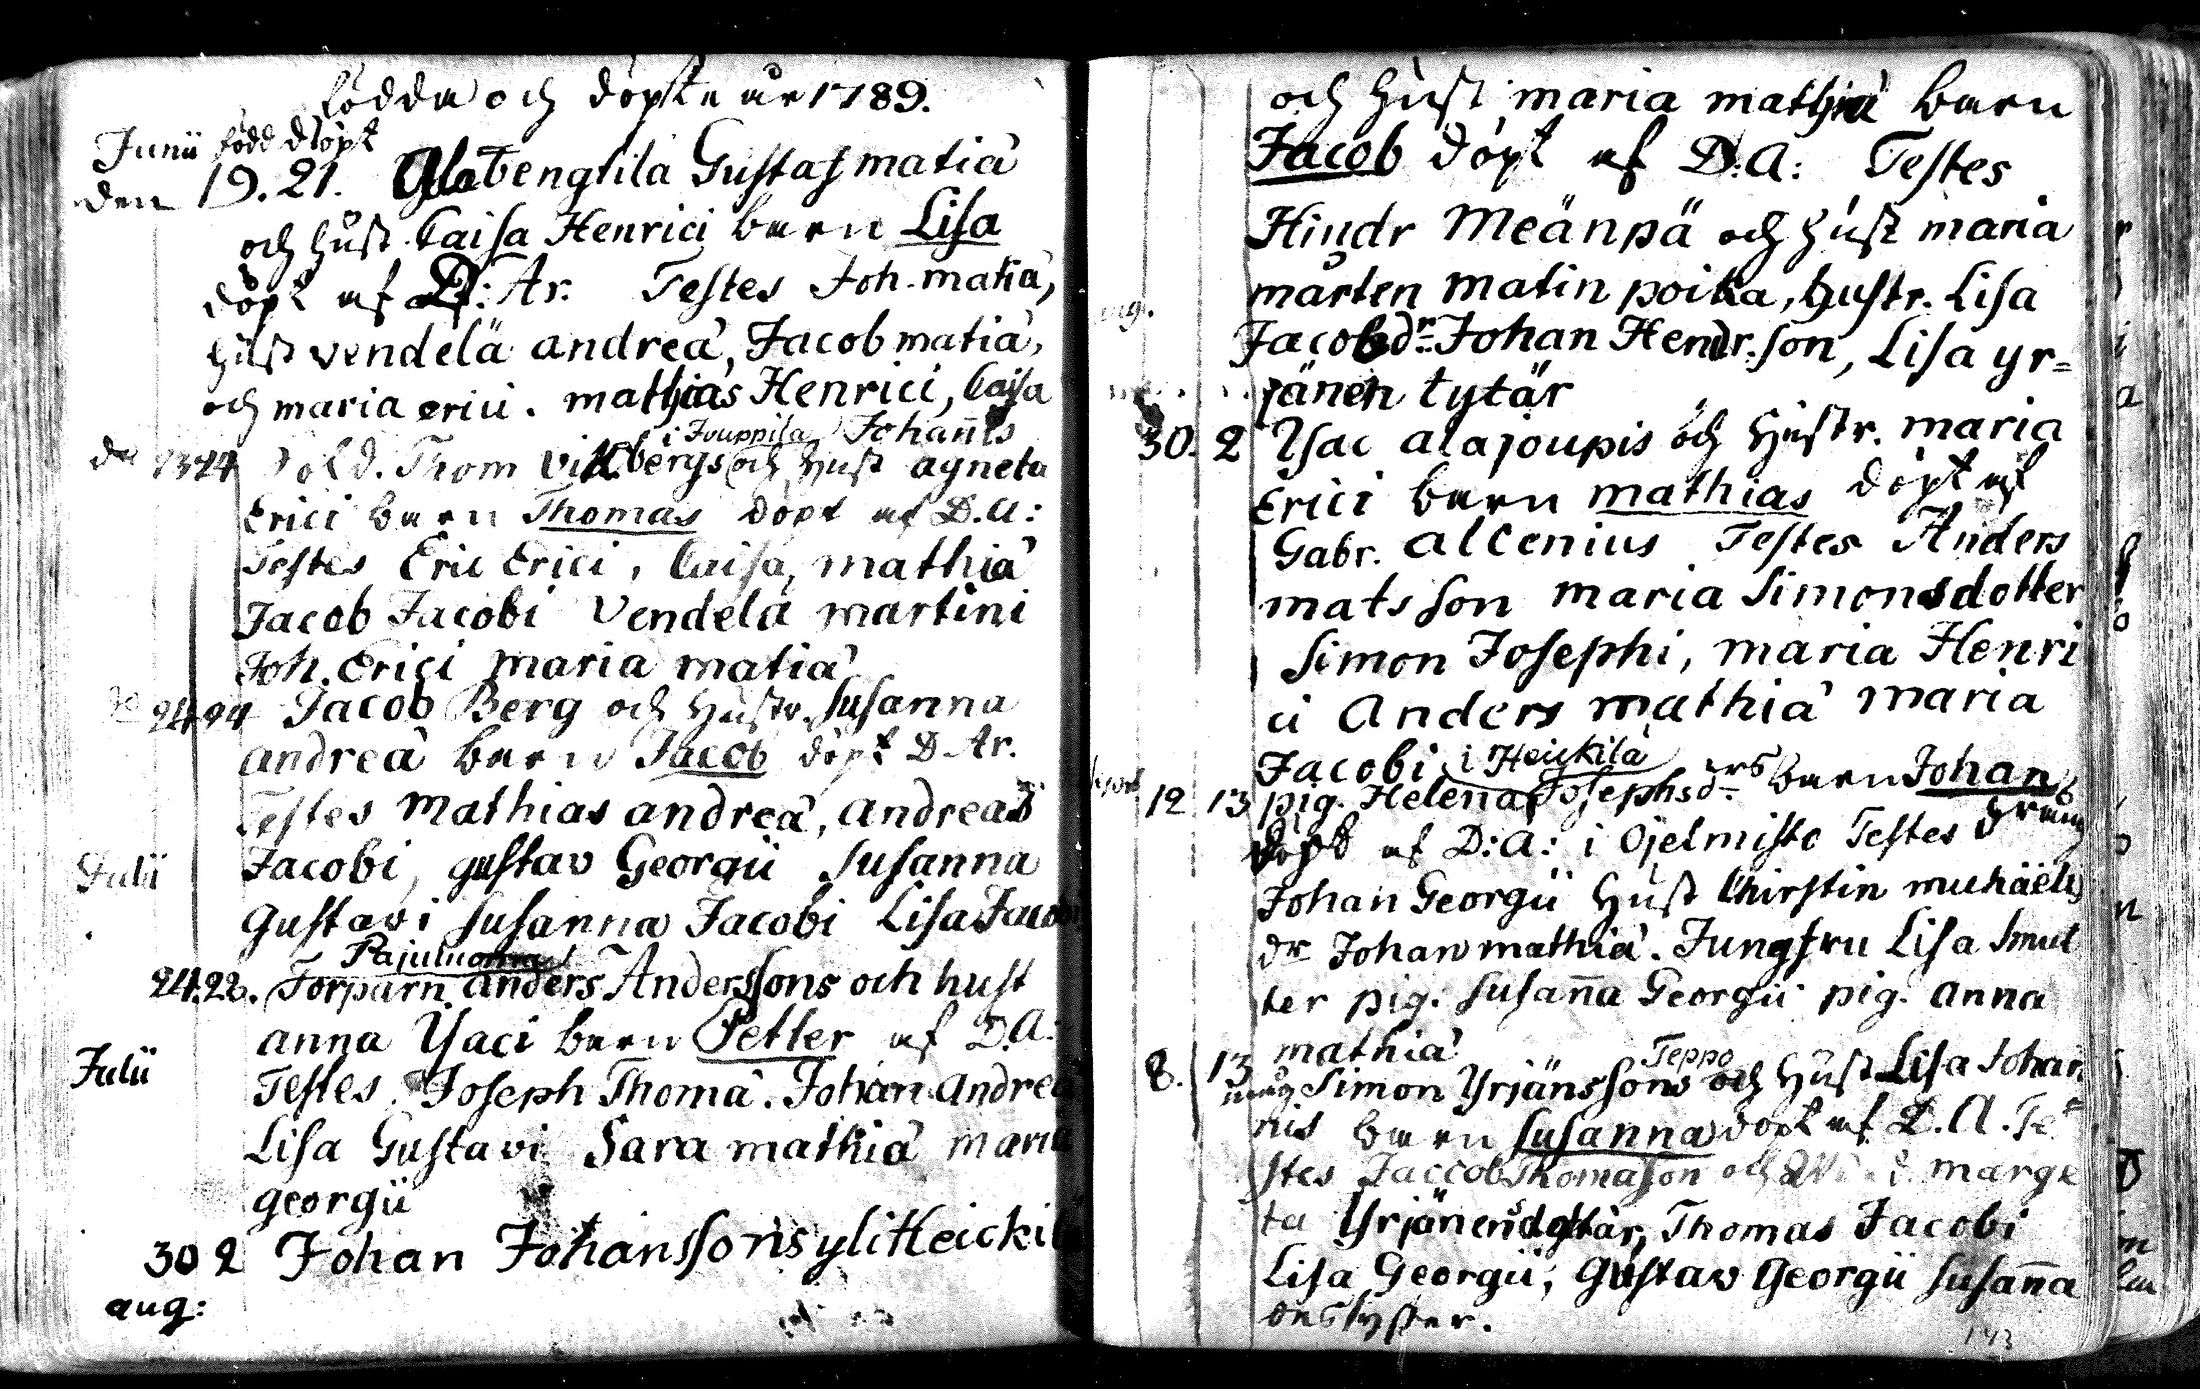 födda och döpte år 1789.
Junii född döpt
den 19. 21. Ala Bengtila Gustaf matiä
och Hust. Caisa Henrici barn Lisa
döpt af D: Ar. Testes Joh. matiä,
Hust vendela andreä, Jacob matiä,
och maria erici. mathias Henrici, Caisa
i Jouppila Johannis
den 23 24 Sold. Thom vikbergs och Hust agneta
Erici barn Thomas döpt af D.A:
Testes Eric Erici, Caisa, mathiä
Jacob Jacobi Vendela martini
Joh. Erici maria matiä
24 24 Jacob Berg och Hustr. Susanna
andreä barn Jacob döpt D. Ar.
Testes mathias andreä, andreas
Julii Jacobi, gustav Georgii Susanna
Gustavi Susanna Jacobi Lisa Jacobi
Pajuluoma
24. 28. Torparn anders Anderssons och hust
anna Ysaci barn Petter af D.A:
Julii Testes. Joseph Thomä. Johan andreä
Lisa Gustavi Sara mathiä maria
georgii
30 2 Johan Johanssons yliHeickilä
aug:
och Hust maria mathiä barn
Jacob döpt af D:A: Testes
Hindr Meänpä och Hust maria
mårten matin poika, Hustr. Lisa
Jacobsdr. Johan Hendr.son, Lisa yr=
jänen tytär
30. 2 Ysac alajoupis och Hustr. maria
Erici barn mathias döpt af
Gabr. alcenius Testes Anders
matsson maria Simonsdotter
Simon Josephi, maria Henri
ci Anders mathiä maria
Jacobi i Heickilä
12 13 pig. Helena Josephsdrs barn Johan
döpt af D:A: i Ojelmisto Testes Dräng
Johan Georgii Hust Chirstin michäels
dr Johan mathiä. Jungfru Lisa Smut
ter pig. Susanna Georgii pig. anna
mathiä Teppo
8. 13 aug Simon Yrjänssons och Hust Lisa Johan
nis barn Susanna döpt af D.A. Te
stes Jaccob Thomasson och marge
ta Yrjänensdottär, Thomas Jacobi
Lisa Georgii, Gustav Georgii Susanna
ons syster.
143